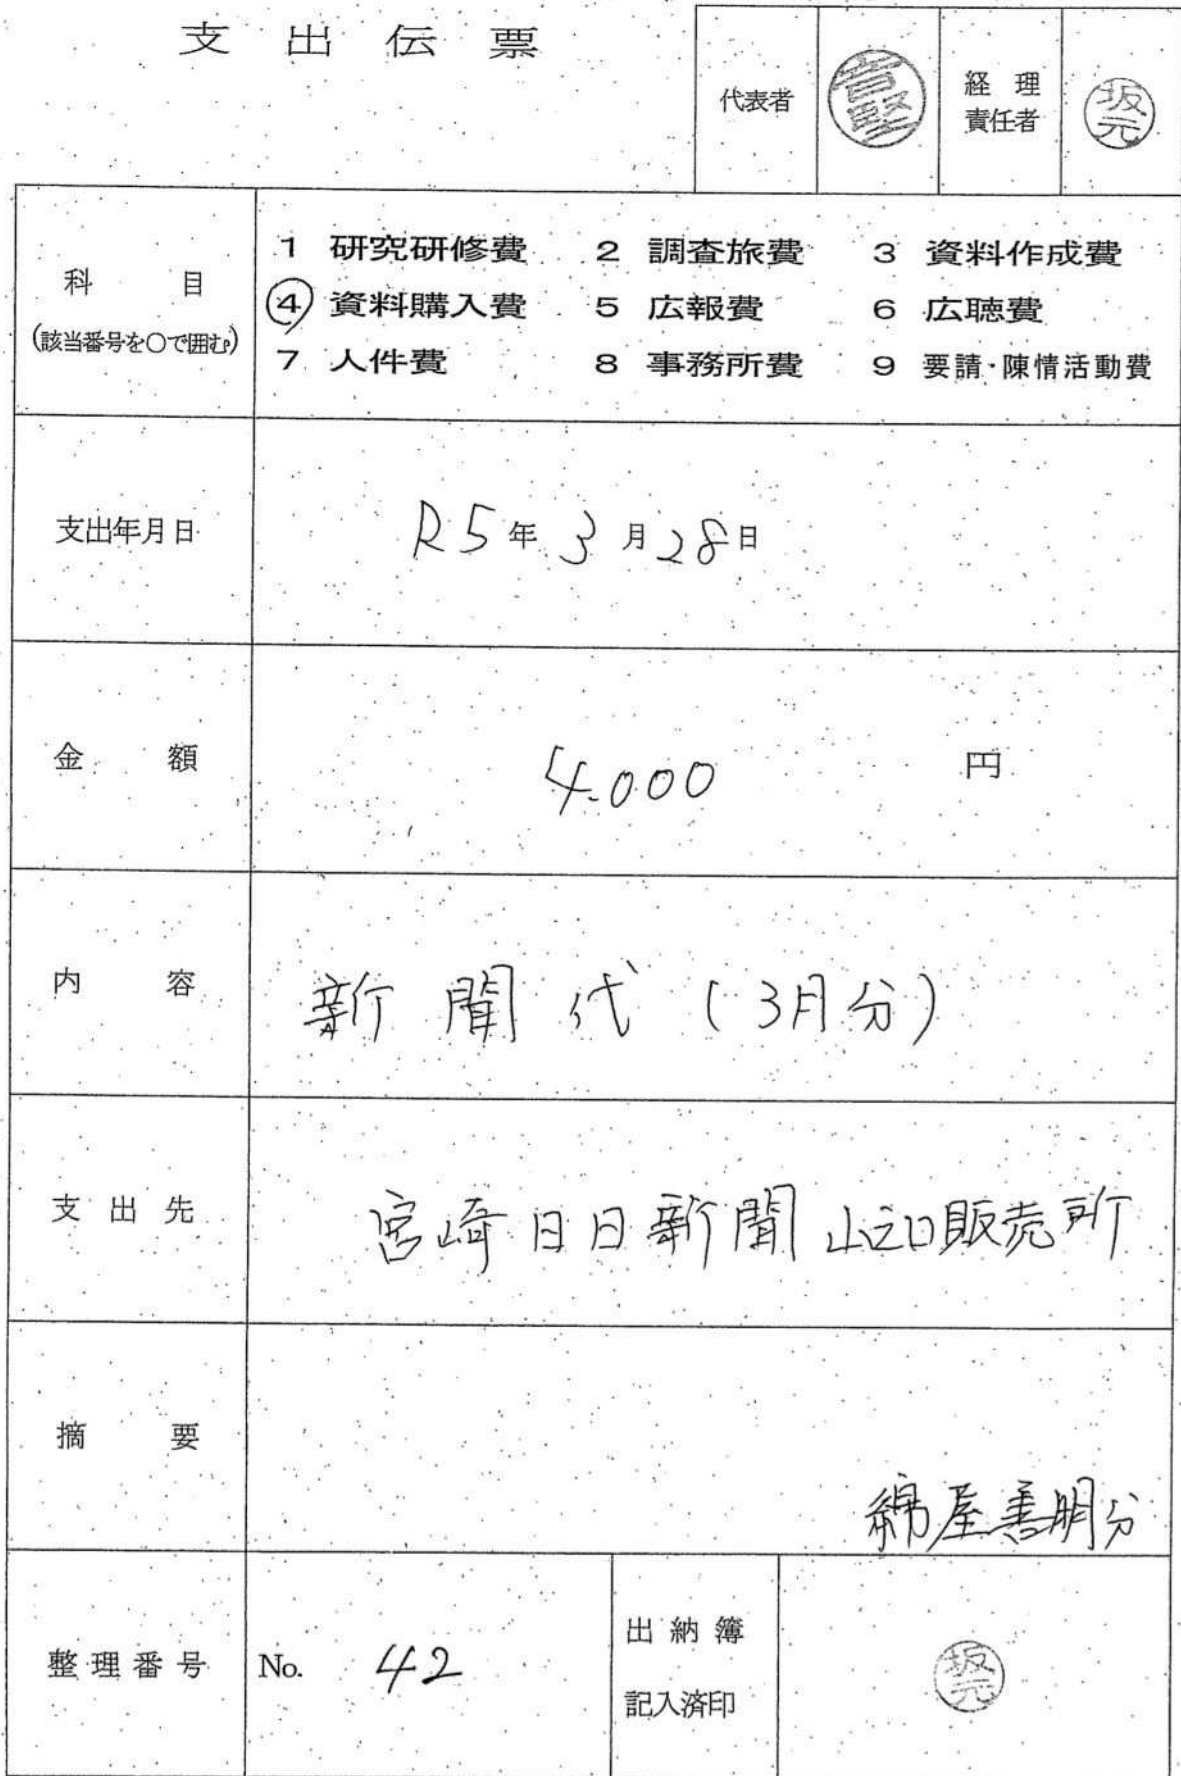 支出伝票
代表者
経理
責任者
坂元
科目
(該当番号を○で囲む)
1 研究研修費 2 調査旅費 3 資料作成費
④ 資料購入費 5 広報費 6 広聴費
7 人件費 8 事務所費 9 要請・陳情活動費
支出年月日
R5年3月28日
金額
4.000 円
内容
新聞代(3月分)
支出先
宮崎日日新聞 山之口販売所
摘要
綿屋善明分
整理番号
No. 42
出納簿
記入済印
坂元